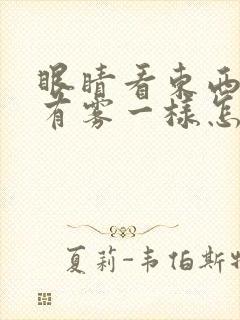 眼睛看東西
有雾一樣怎
夏莉-韦伯斯特